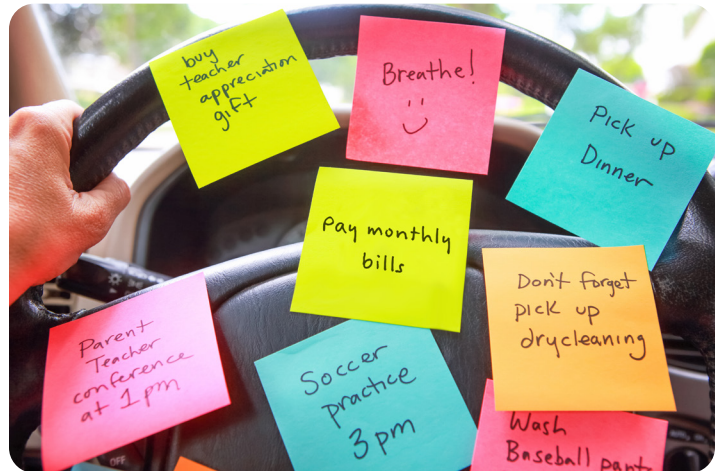 buy
teacher
appreciation
gift
Breathe!
Pick up
Dinner
Pay monthly
bills
Don't forget
pick up
drycleaning
Parent
Teacher
conference
at 1pm
Soccer
practice
3pm
Wash
Baseball pant
OFF